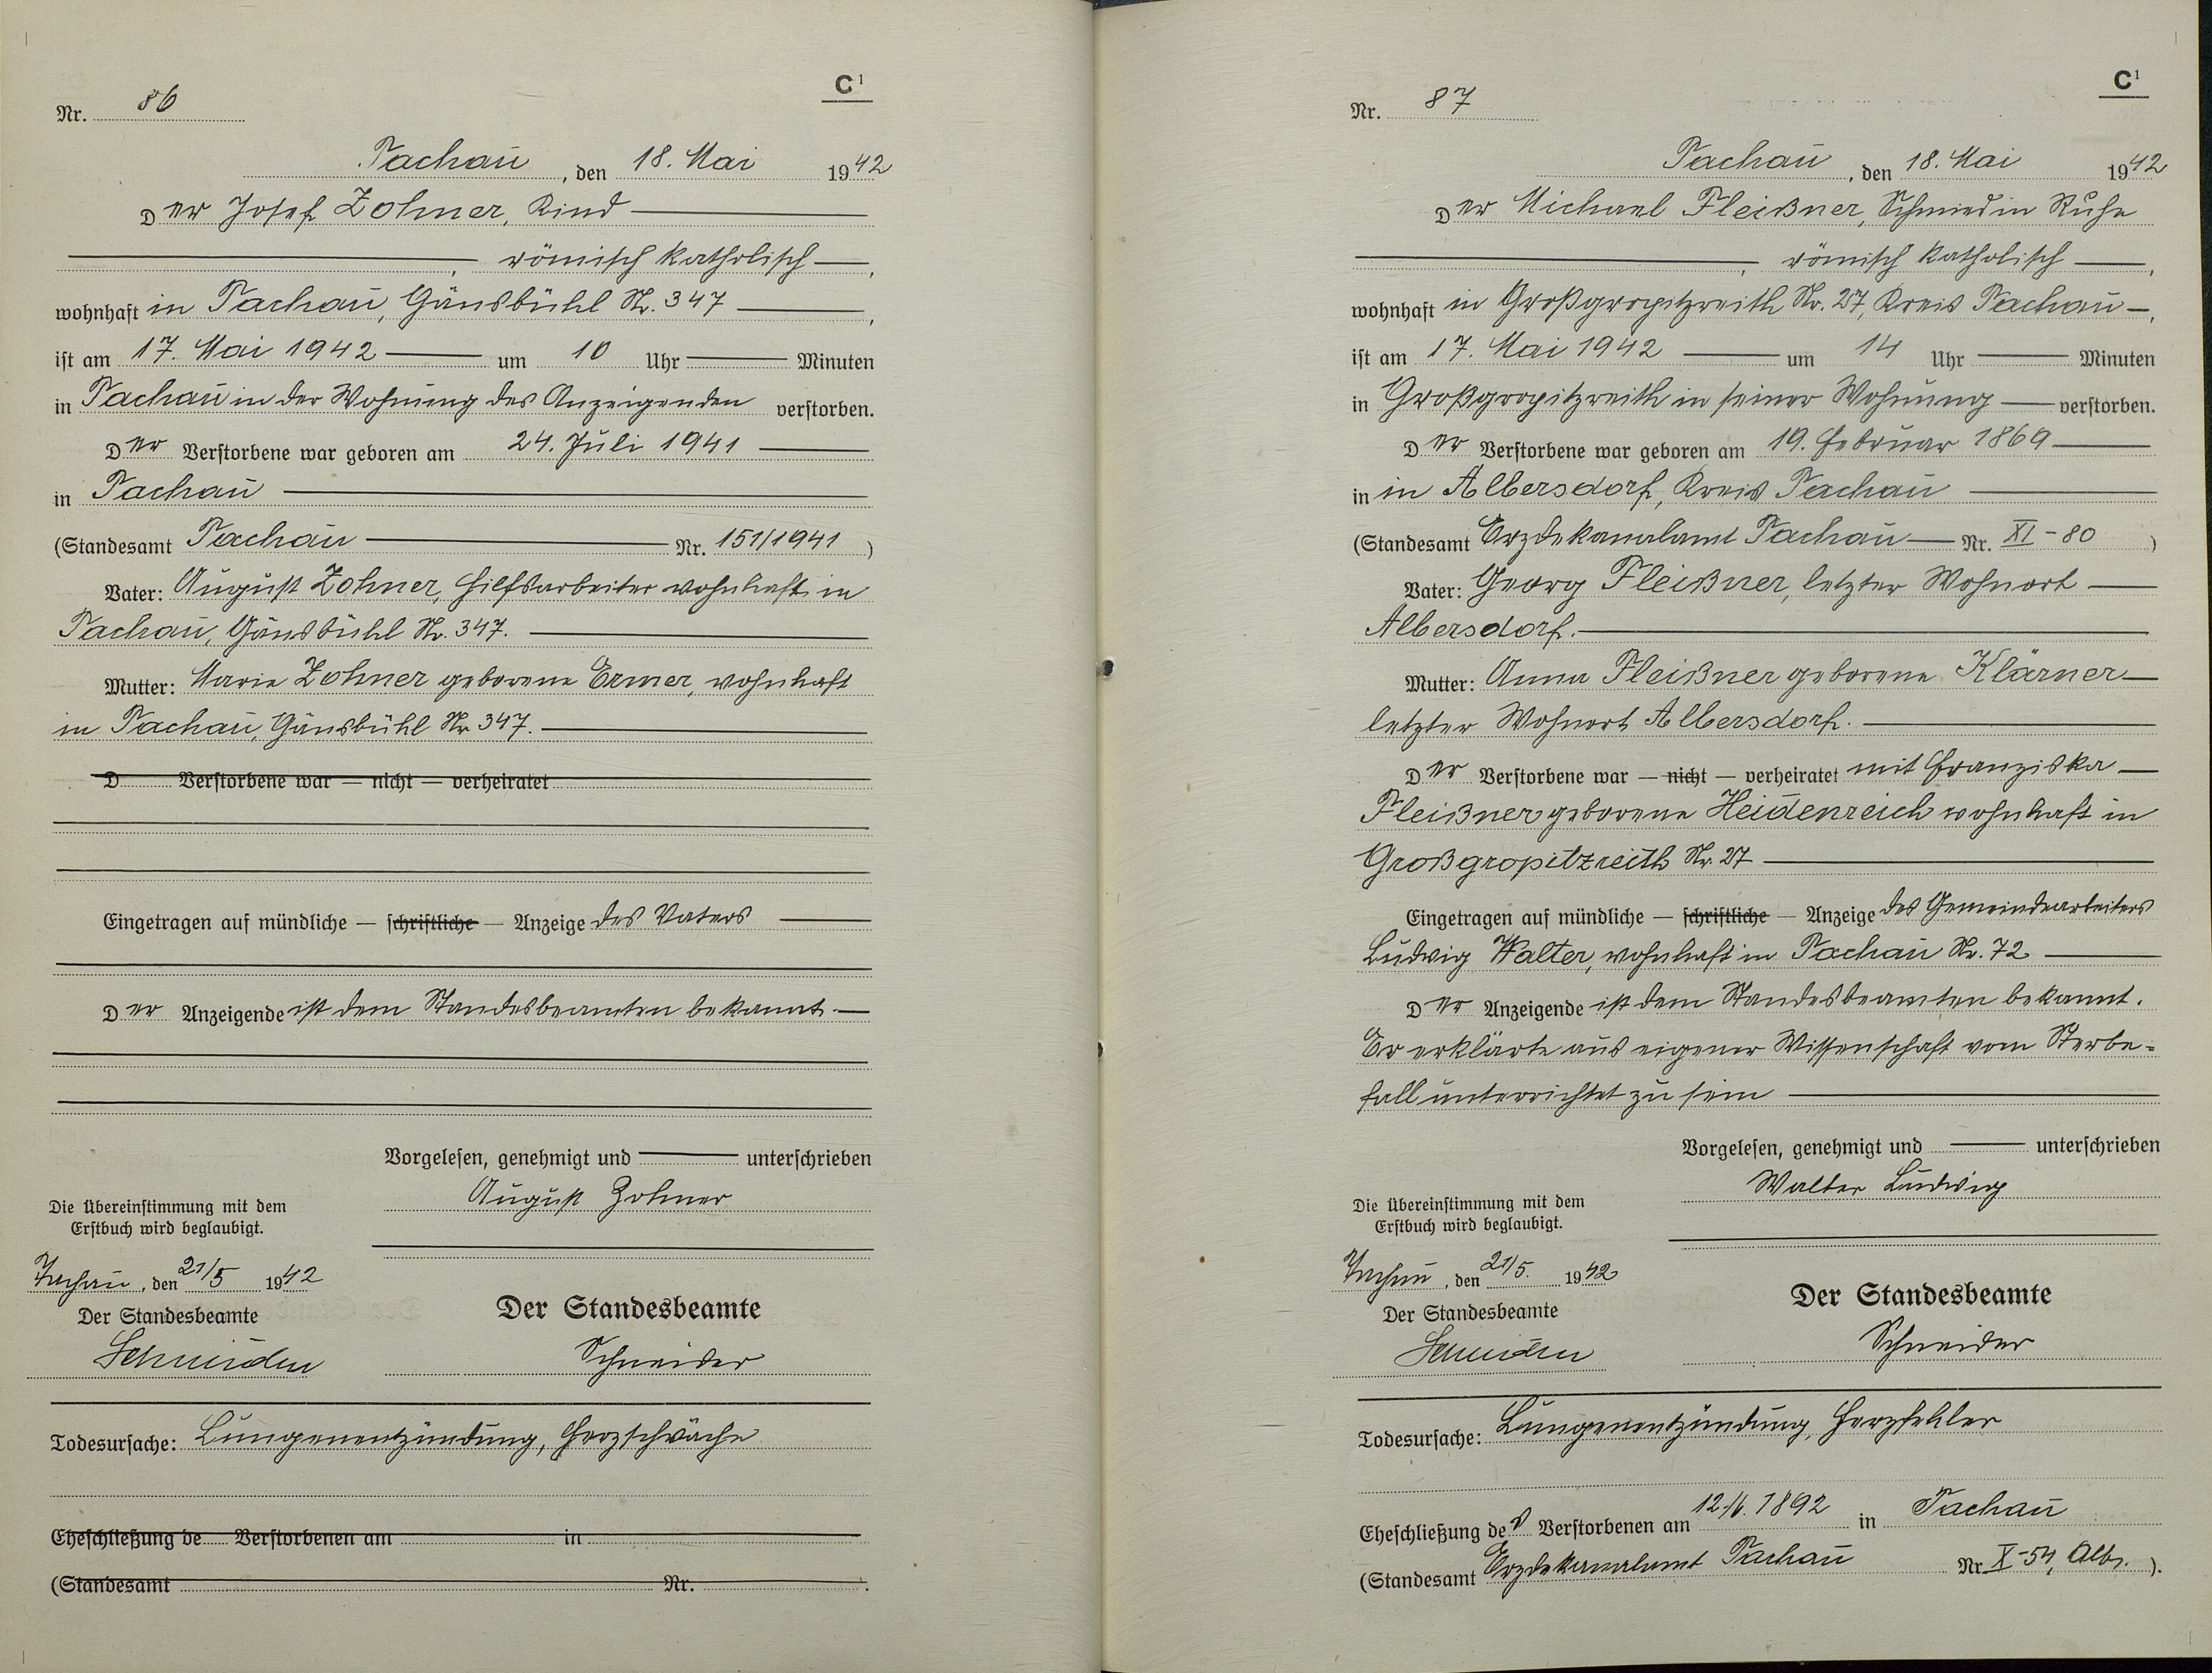 C¹
Nr. 86
Tachau, den 18. Mai 1942
Der Josef Zohner, Kind
, römisch katholisch,
wohnhaft in Tachau, Gänsbühl Nr. 347,
ist am 17. Mai 1942 um 10 Uhr Minuten
in Tachau in der Wohnung des Anzeigenden verstorben.
Der Verstorbene war geboren am 24. Juli 1941
in Tachau
(Standesamt Tachau Nr. 151/1941)
Vater: August Zohner, Hilfsarbeiter wohnhaft in
Tachau, Gänsbühl Nr. 347.
Mutter: Marie Zohner geborene Ermer, wohnhaft
in Tachau, Gänsbühl Nr. 347.
D Verstorbene war — nicht — verheiratet
Eingetragen auf mündliche — schriftliche — Anzeige des Vaters
Der Anzeigende ist dem Standesbeamten bekannt.
Vorgelesen, genehmigt und unterschrieben
August Zohner
Die Übereinstimmung mit dem
Erstbuch wird beglaubigt.
Tachau, den 21/5 1942
Der Standesbeamte
Schneider
Der Standesbeamte
Schneider
Todesursache: Lungenentzündung, Herzschwäche
Eheschließung de Verstorbenen am in
(Standesamt Nr. ).
C¹
Nr. 87
Tachau, den 18. Mai 1942
Der Michael Fleißner, Schmied in Ruhe
, römisch katholisch,
wohnhaft in Großgropitzreith Nr. 27, Kreis Tachau,
ist am 17. Mai 1942 um 14 Uhr Minuten
in Großgropitzreith in seiner Wohnung verstorben.
Der Verstorbene war geboren am 19. Februar 1869
in in Albersdorf, Kreis Tachau
(Standesamt Erzdekanalamt Tachau Nr. XI-80)
Vater: Georg Fleißner, letzter Wohnort
Albersdorf.
Mutter: Anna Fleißner geborene Klärner
letzter Wohnort Albersdorf.
Der Verstorbene war — nicht — verheiratet mit Franziska
Fleißner geborene Heidenreich wohnhaft in
Großgropitzreith Nr. 27
Eingetragen auf mündliche — schriftliche — Anzeige des Gemeindearbeiters
Ludwig Walter, wohnhaft in Tachau Nr. 72
Der Anzeigende ist dem Standesbeamten bekannt.
Er erklärte aus eigener Wissenschaft vom Sterbe-
fall unterrichtet zu sein
Vorgelesen, genehmigt und unterschrieben
Walter Ludwig
Die Übereinstimmung mit dem
Erstbuch wird beglaubigt.
Tachau, den 21/5. 1942
Der Standesbeamte
Schneider
Der Standesbeamte
Schneider
Todesursache: Lungenentzündung, Herzfehler
Eheschließung des Verstorbenen am 12./6. 1892 in Tachau
(Standesamt Erzdekanalamt Tachau Nr. X-54, Alb. ).